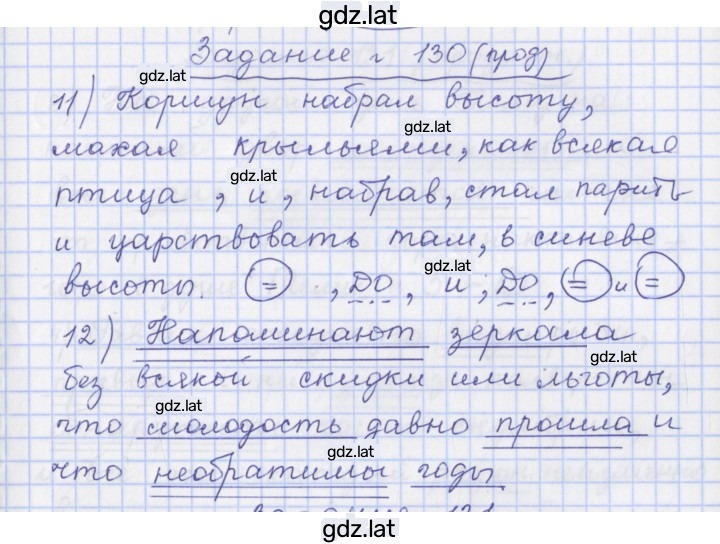 gdz.lat
Задание № 130 (прод)
gdz.lat
11) Коршун набрал высоту,
gdz.lat
махая крыльями, как всякая
gdz.lat
птица, и, набрав, стал парить
и царствовать там, в синеве
gdz.lat
высоты. (=), ДО, и, ДО, (=) и (=)
12) Напоминают зеркала
gdz.lat
без всякой скидки или льготы,
что молодость давно прошла и
gdz.lat
что необратимы годы.
gdz.lat